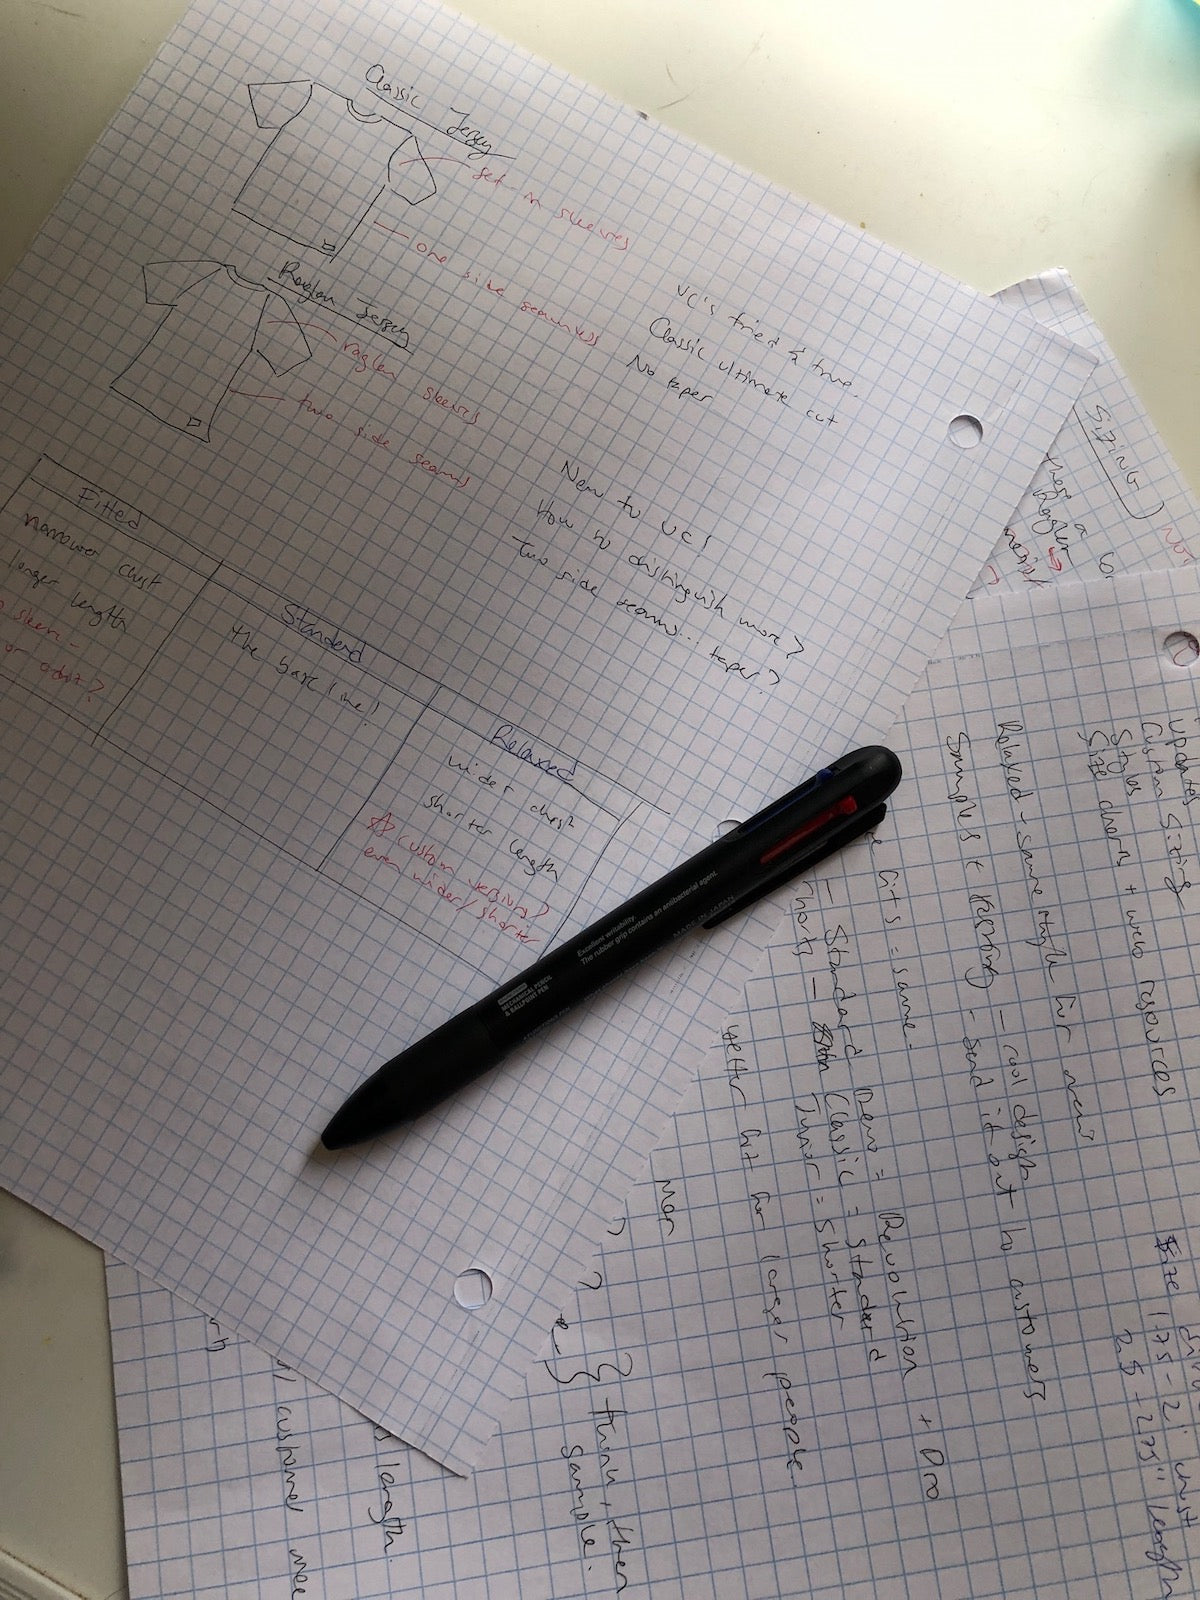 Classic Jersey
set-in sleeves
one side seamless
VC's tried & true.
Classic ultimate cut
No taper
Raglan Jersey
raglan sleeves
two side seams
New to VC!
How to distinguish more?
Two side seams... taper?
Fitted
narrower chest
longer length
sleeve -
or adjust?
Standard
the base line!
Relaxed
wider chest
shorter length
☆ custom versions?
even wider/shorter
Excellent writability.
The rubber grip contains an antibacterial agent.
MADE IN JAPAN
MECHANICAL PENCIL
& BALLPOINT PEN
SIZING
Raglan →
updates
Custom Sizing
Styles
Size charts + web resources
Relaxed - same style for men?
Samples + testing - cool design
- send it out to customers
fits = same.
- Standard Revo = Revolution + Pro
shorts - Classic = standard
= shorter
better fit for larger people.
Size 1.75 - 2" chest
2.5 - 2.75" length
} think, then
sample.
length.
custome